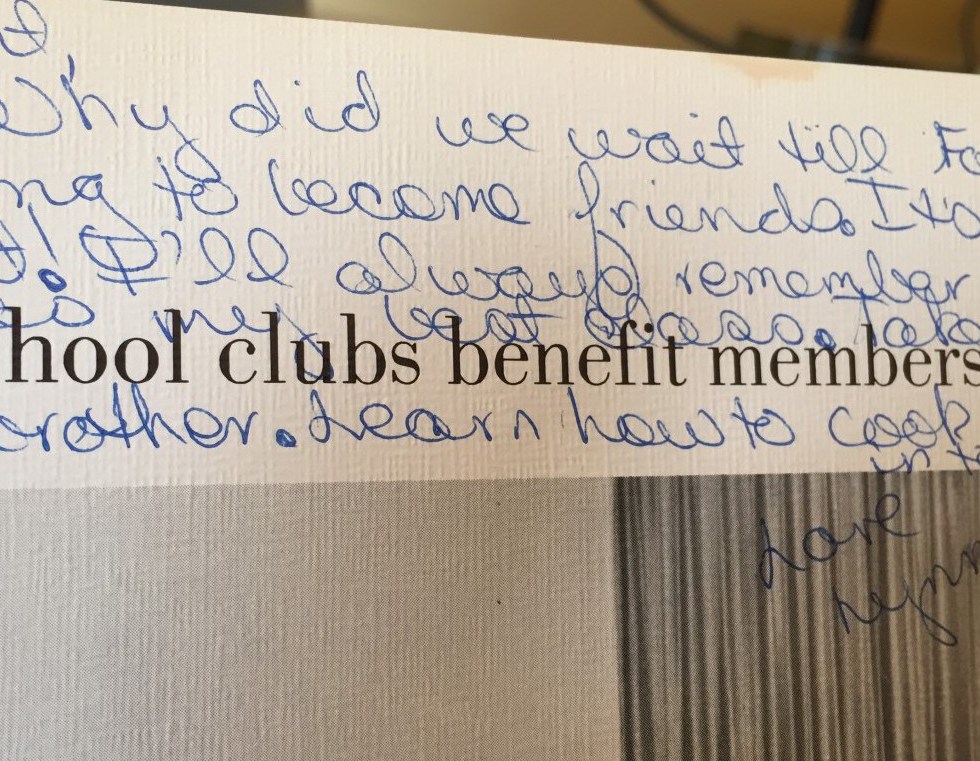 t,
Why did we wait till Fo
ng to become friends. Its
t! I'll always remember
as my best
hool clubs benefit members
brother. Learn how to cook
in t
Love
Lynn